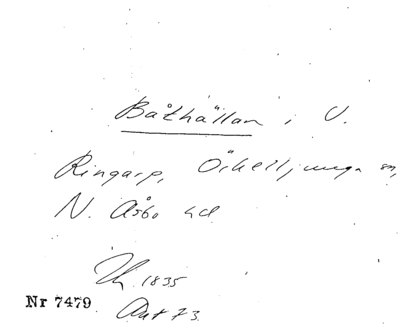 Båthällan i V.
Ringarp, Örkelljunga sn,
N. Åsbo hd
1835
Nr 7479
Ant 73.